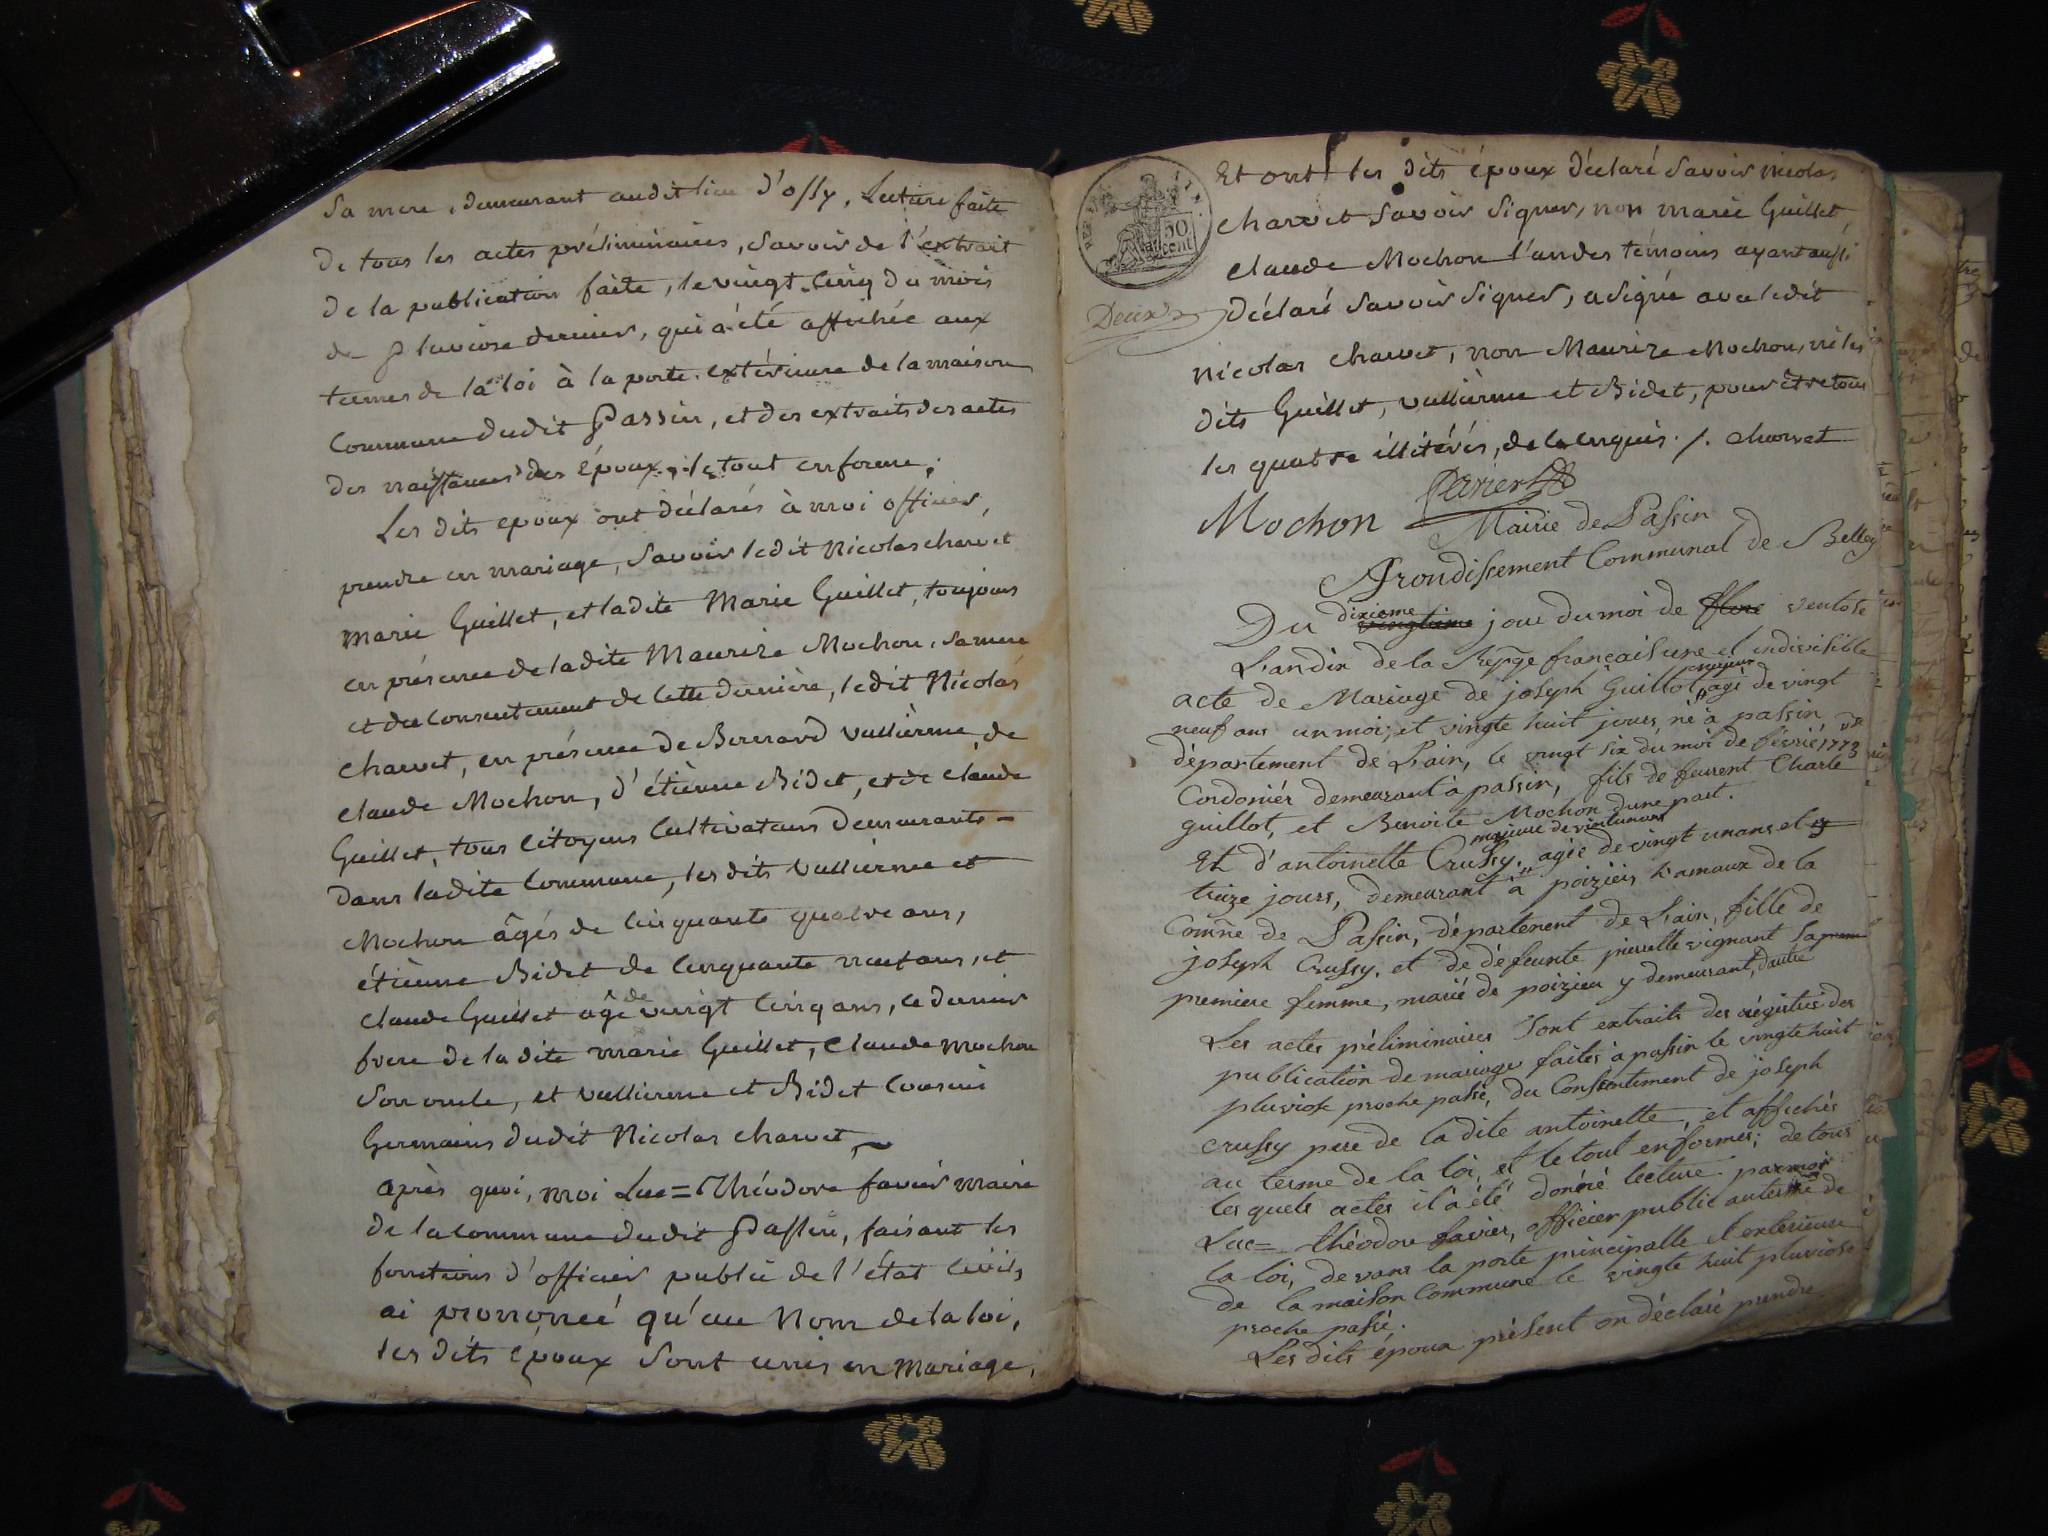 Sa mere, demeurant audit lieu d'ossy, Lecture faite
de tous les actes préliminaires, savoir de l'extrait
de la publication faite, le vingt-cinq du mois
de Pluviose dernier, qui a été affichée aux
termes de la loi à la porte extérieure de la maison
Commune dudit Passin, et des extraits des actes
des naissances des époux, le tout en forme;
Les dits epoux ont déclarés à moi officier,
prendre en mariage, Savoir ledit Nicolas charvet
Marie Guillet, et ladite Marie Guillet, toujours
en présence de ladite Maurize Mochon, sa mere
et du consentement de cette dernière, ledit Nicolas
Charvet, en présence de Bernard vullierme, de
Claude Mochon, d'étienne Bidet, et de claude
Guillet, tous citoyens Cultivateurs demeurants
dans ladite Commune, les dits vullierme et
Mochon âgés de cinquante quatre ans,
étienne Bidet de cinquante neuf ans, et
claude Guillet âgé de vingt cinq ans, ce dernier
frere de la dite marie Guillet, Claude mochon
son oncle, et vullierme et Bidet cousins
Germains dudit Nicolas charvet,
après quoi, moi Luc=Théodore favier maire
de la commune dudit Passin, faisant les
fonctions d'officier public de l'état civil,
ai prononcé qu'au Nom de la loi,
les dits epoux sont unis en Mariage,
50
cent
Et ont les dits époux déclaré savoir nicolas
charvet savoir signer, non marie Guillet
claude Mochon l'un des témoins ayant aussi
déclaré savoir signer, a signé avec ledit
nicolas charvet, non Maurize Mochon, ni les
dits Guillet, vullierme et Bidet, pour être tous
les quatre illitérés, de ce enquis ./. charvet
Mochon
Favier
Mairie de Passin
Arondissement Communal de Belley
Du dixieme vingtieme jour du moi de flore ventose
L'an dix de la Repge français une et indivisible
acte de Mariage de joseph Guillot majeur agé de vingt
neuf ans un moi, et vingte huit jours, né à passin
département de L'ain, le vingt six du moi de février 1773
Cordoniér demeurant à passin, fils de feurent Charle
guillot, et Benoite Mochon dune part.
Et d'antoinette Crussy, majeure de vint un ans agée de vingt un ans et
treize jours, demeurant à poizieu hamaux de la
Comne de Passin, département de L'ain, fille de
joseph Crussy, et de défeunte pierrette vignant sa
premiere femme, marié de poizieu y demeurant, dautre
Les actes préliminaires sont extraits des régistres des
publication de mariage faites à passin le vingte huit
pluviose proche passé, du Consentement de joseph
crussy pere de la dite antoinette, et affichés
au terme de la loi, et le tout en formes; de tous
les quels actes il a été donné lecture par moi
Luc= théodore favier, officier public au terme de
la loi, devans la porte principalle et exterieure
de la maison Commune le vingte huit pluviose
proche passé.
Les dits époux présent on déclaré prendre